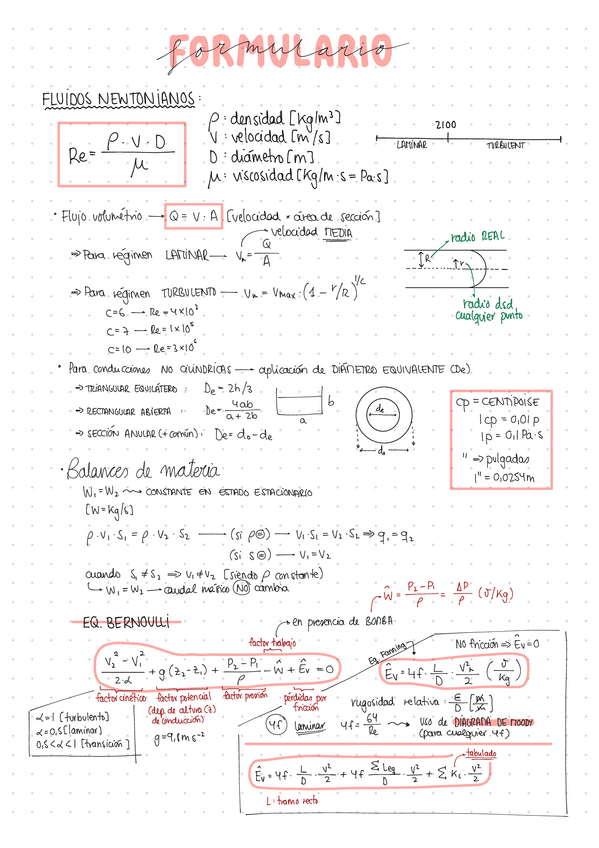 FORMULARIO
formulario
FLUIDOS NEWTONIANOS:
Re = ρ · V · D / μ
ρ: densidad [Kg/m³]
V: velocidad [m/s]
D: diámetro [m]
μ: viscosidad [Kg/m·s = Pa·s]
2100
LAMINAR TURBULENT
· Flujo volumétrio → Q = V · A [velocidad * área de sección]
velocidad MEDIA
⇒ Para régimen LAMINAR → Vm = Q / A
radio REAL
R
r
radio dsd cualquier punto
⇒ Para régimen TURBULENTO → Vm = Vmax · (1 - r/R)^1/c
C=6 → Re = 4x10³
C=7 → Re = 1x10⁵
C=10 → Re = 3x10⁶
· Para conducciones NO CILÍNDRICAS → aplicación de DIÁMETRO EQUIVALENTE (De)
→ TRIANGULAR EQUILÁTERO: De = 2h/3
→ RECTANGULAR ABIERTA: De = 4ab / a + 2b
b
a
→ SECCIÓN ANULAR (+ común): De = do - de
de
do
cp = CENTIPOISE
1cp = 0,01 p
1p = 0,1 Pa·s
" ⇒ pulgadas
1" = 0,0254m
· Balances de materia
W₁ = W₂ → CONSTANTE EN ESTADO ESTACIONARIO
[W = Kg/s]
ρ · V₁ · S₁ = ρ · V₂ · S₂ → (si ρ=) → V₁ · S₁ = V₂ · S₂ ⇒ q₁ = q₂
(si S=) → V₁ = V₂
cuando S₁ ≠ S₂ ⇒ V₁ ≠ V₂ [siendo ρ constante)
↳ W₁ = W₂ → caudal másico NO cambia
Ŵ = P₂ - P₁ / ρ = ΔP / ρ (J/Kg)
EQ. BERNOULLI
en presencia de BOMBA
factor trabajo
V₂² - V₁² / 2·α + g (z₂ - z₁) + P₂ - P₁ / ρ - Ŵ + Êv = 0
factor cinético
factor potencial
(dep. de altura (z) de conducción)
factor presión
pérdidas por fricción
α = 1 [turbulento]
α = 0,5 [laminar]
0,5 < α < 1 [transición]
g = 9,8 m s⁻²
NO fricción ⇒ Êv = 0
Eq. Fanning
Êv = 4f · L / D · Vm² / 2 (J / Kg)
rugosidad relativa: ε / D [m / m]
4f laminar 4f = 64 / Re → uso de DIAGRADA DE MOODY
(para cualquier 4f)
tabulado
Êv = 4f · L / D · V² / 2 + 4f ΣLeq / D · V² / 2 + Σ Kf · V² / 2
L: tramo recto